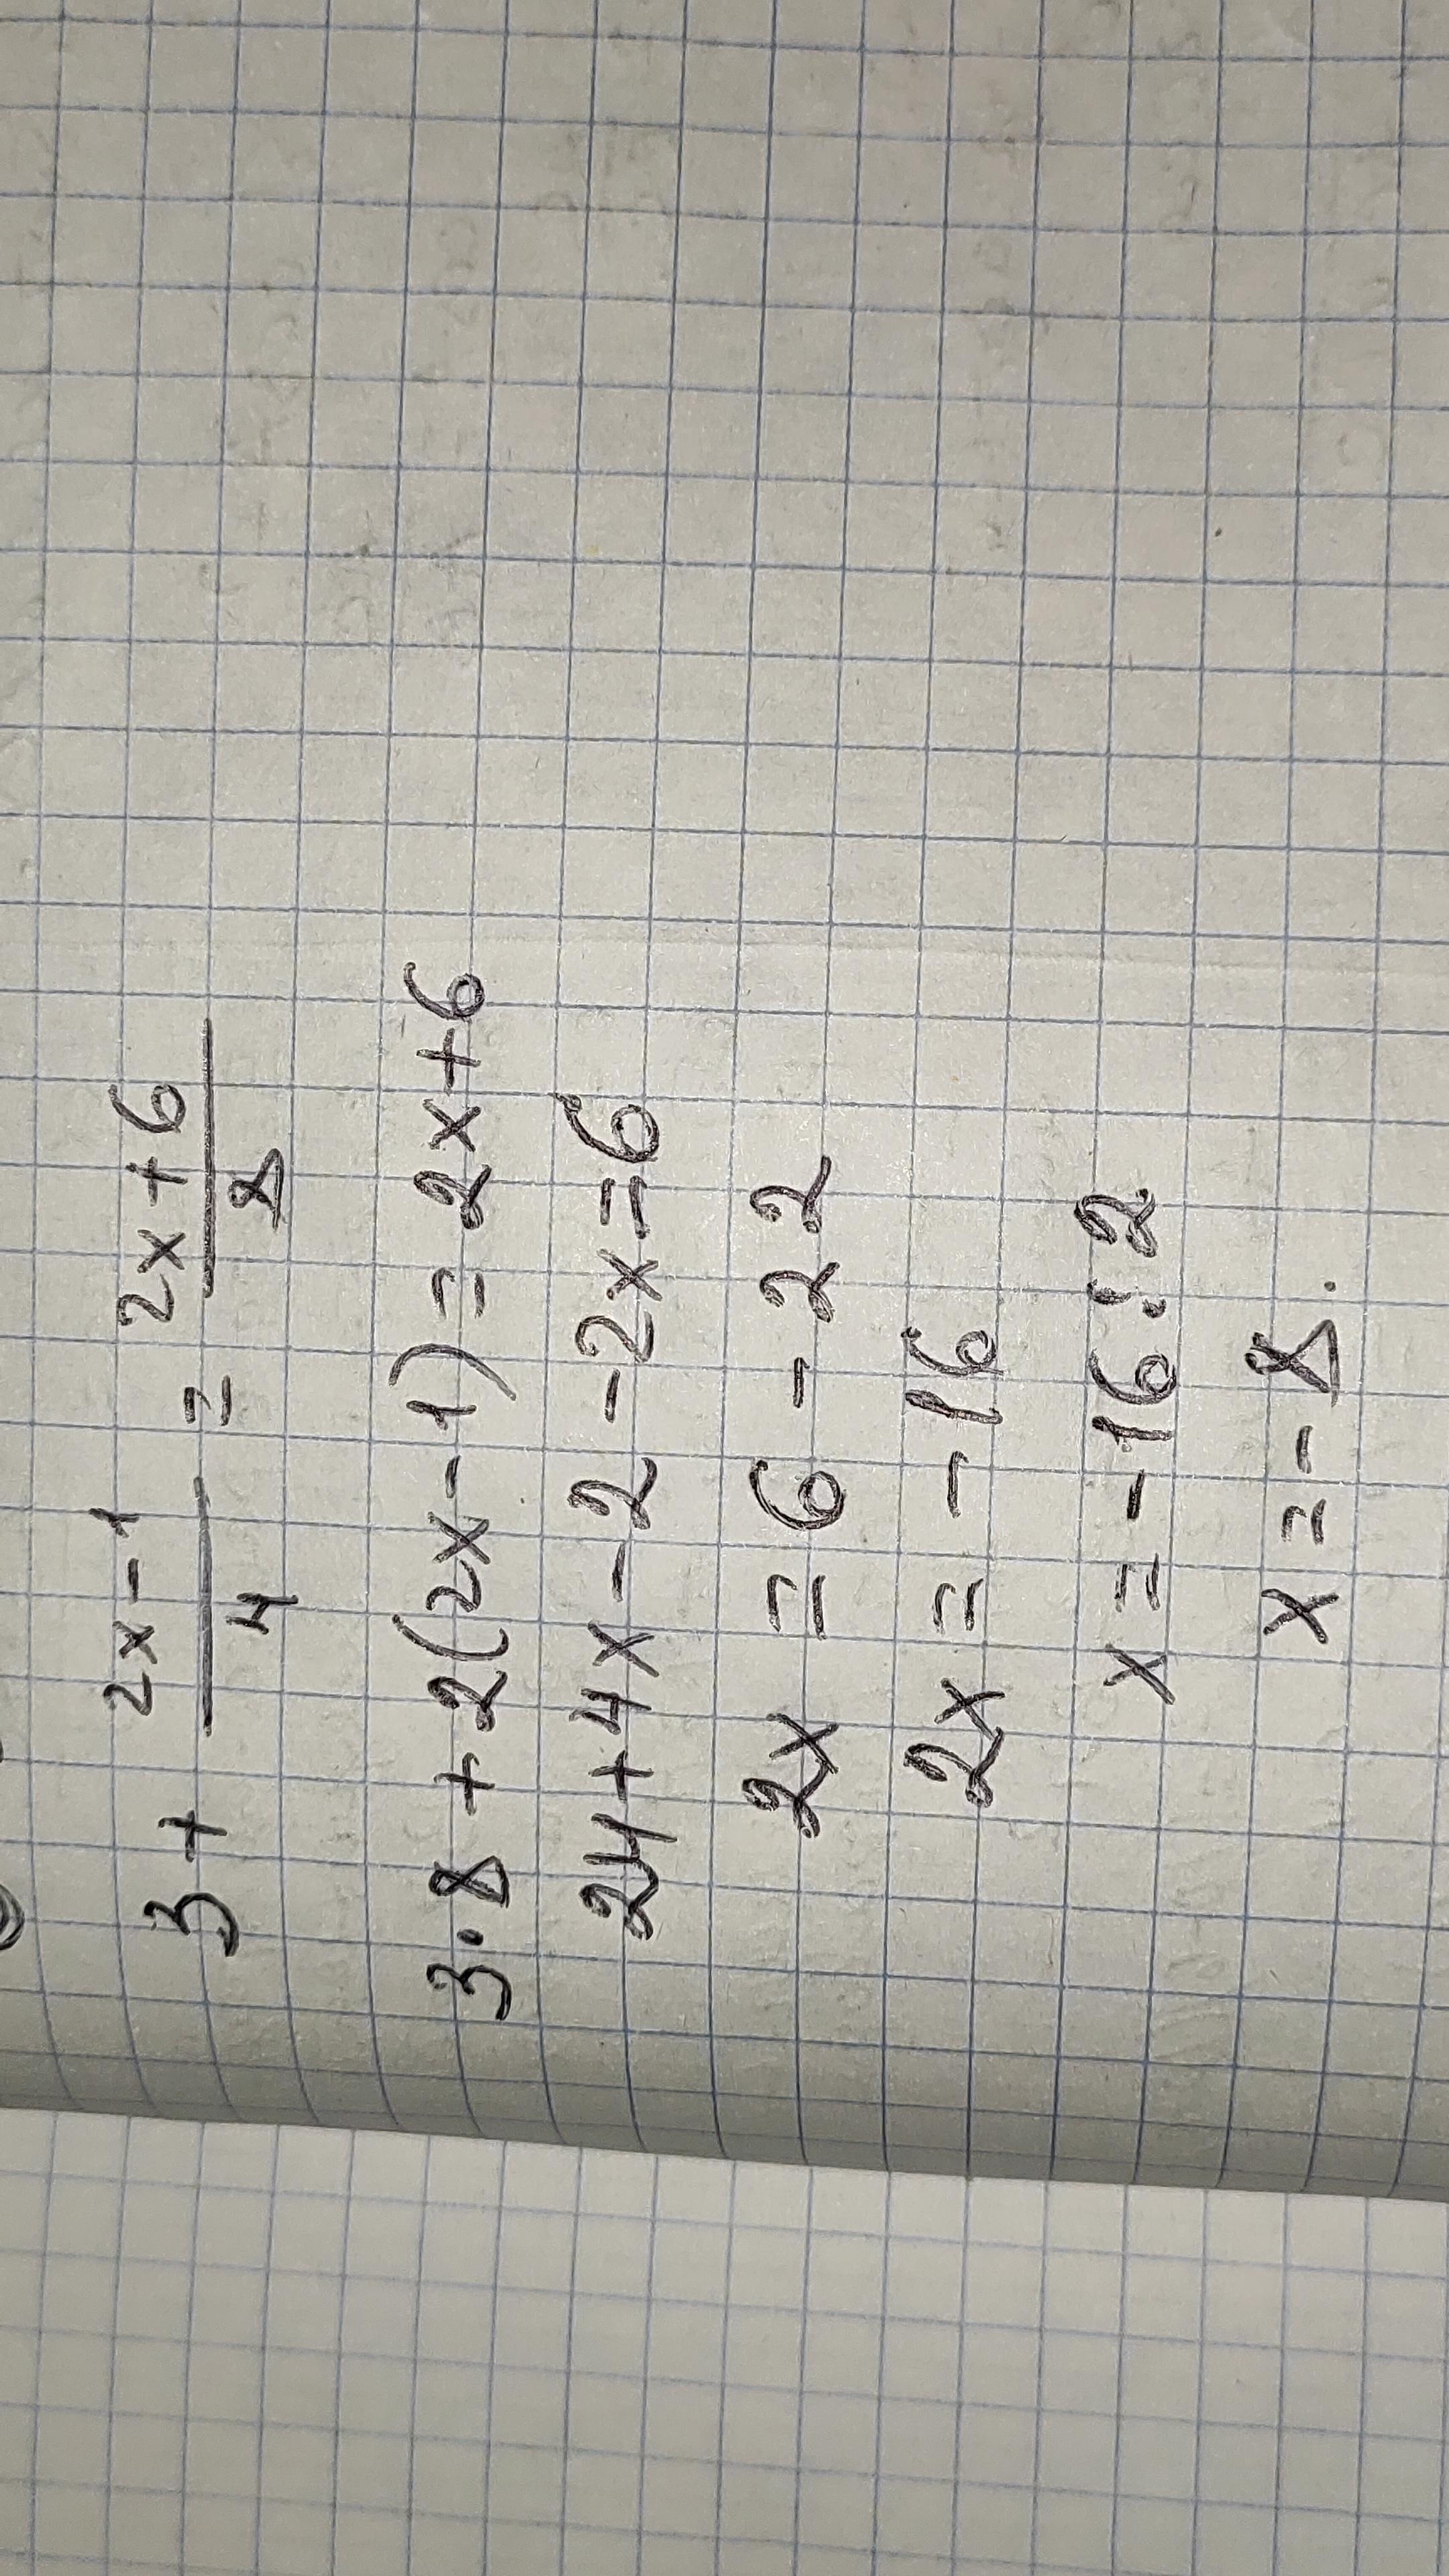 3 + (2x-1)/4 = (2x+6)/8
3·8 + 2(2x-1) = 2x+6
24+4x-2-2x=6
2x = 6 - 22
2x = -16
x = -16:2
x = -8.